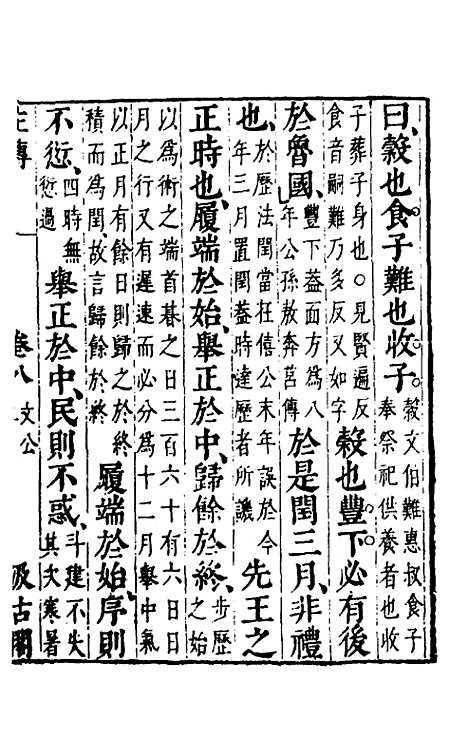 曰、穀也食子難也收子。穀文伯難惠叔食子
奉祭祀供養者也收
子葬子身也○見賢遍反
食音嗣難乃多反又如字
穀也豐下必有後
於魯國、豐下葢面方為八
年公孫敖奔莒傳
於是閏三月、非禮
也、於歷法閏當在僖公末年誤於今
年三月置閏葢時達歷者所譏
先王之
正時也、履端於始、舉正於中、歸餘於終、步歷
之始
以為術之端首朞之日三百六十有六日日
月之行又有遲速而必分為十二月舉中氣
以正月有餘日則歸之於終
積而為閏故言歸餘於終
履端於始、序則
不愆、四時無
愆過
舉正於中、民則不惑、斗建不失
其次寒暑
左傳 卷八 文公 汲古閣